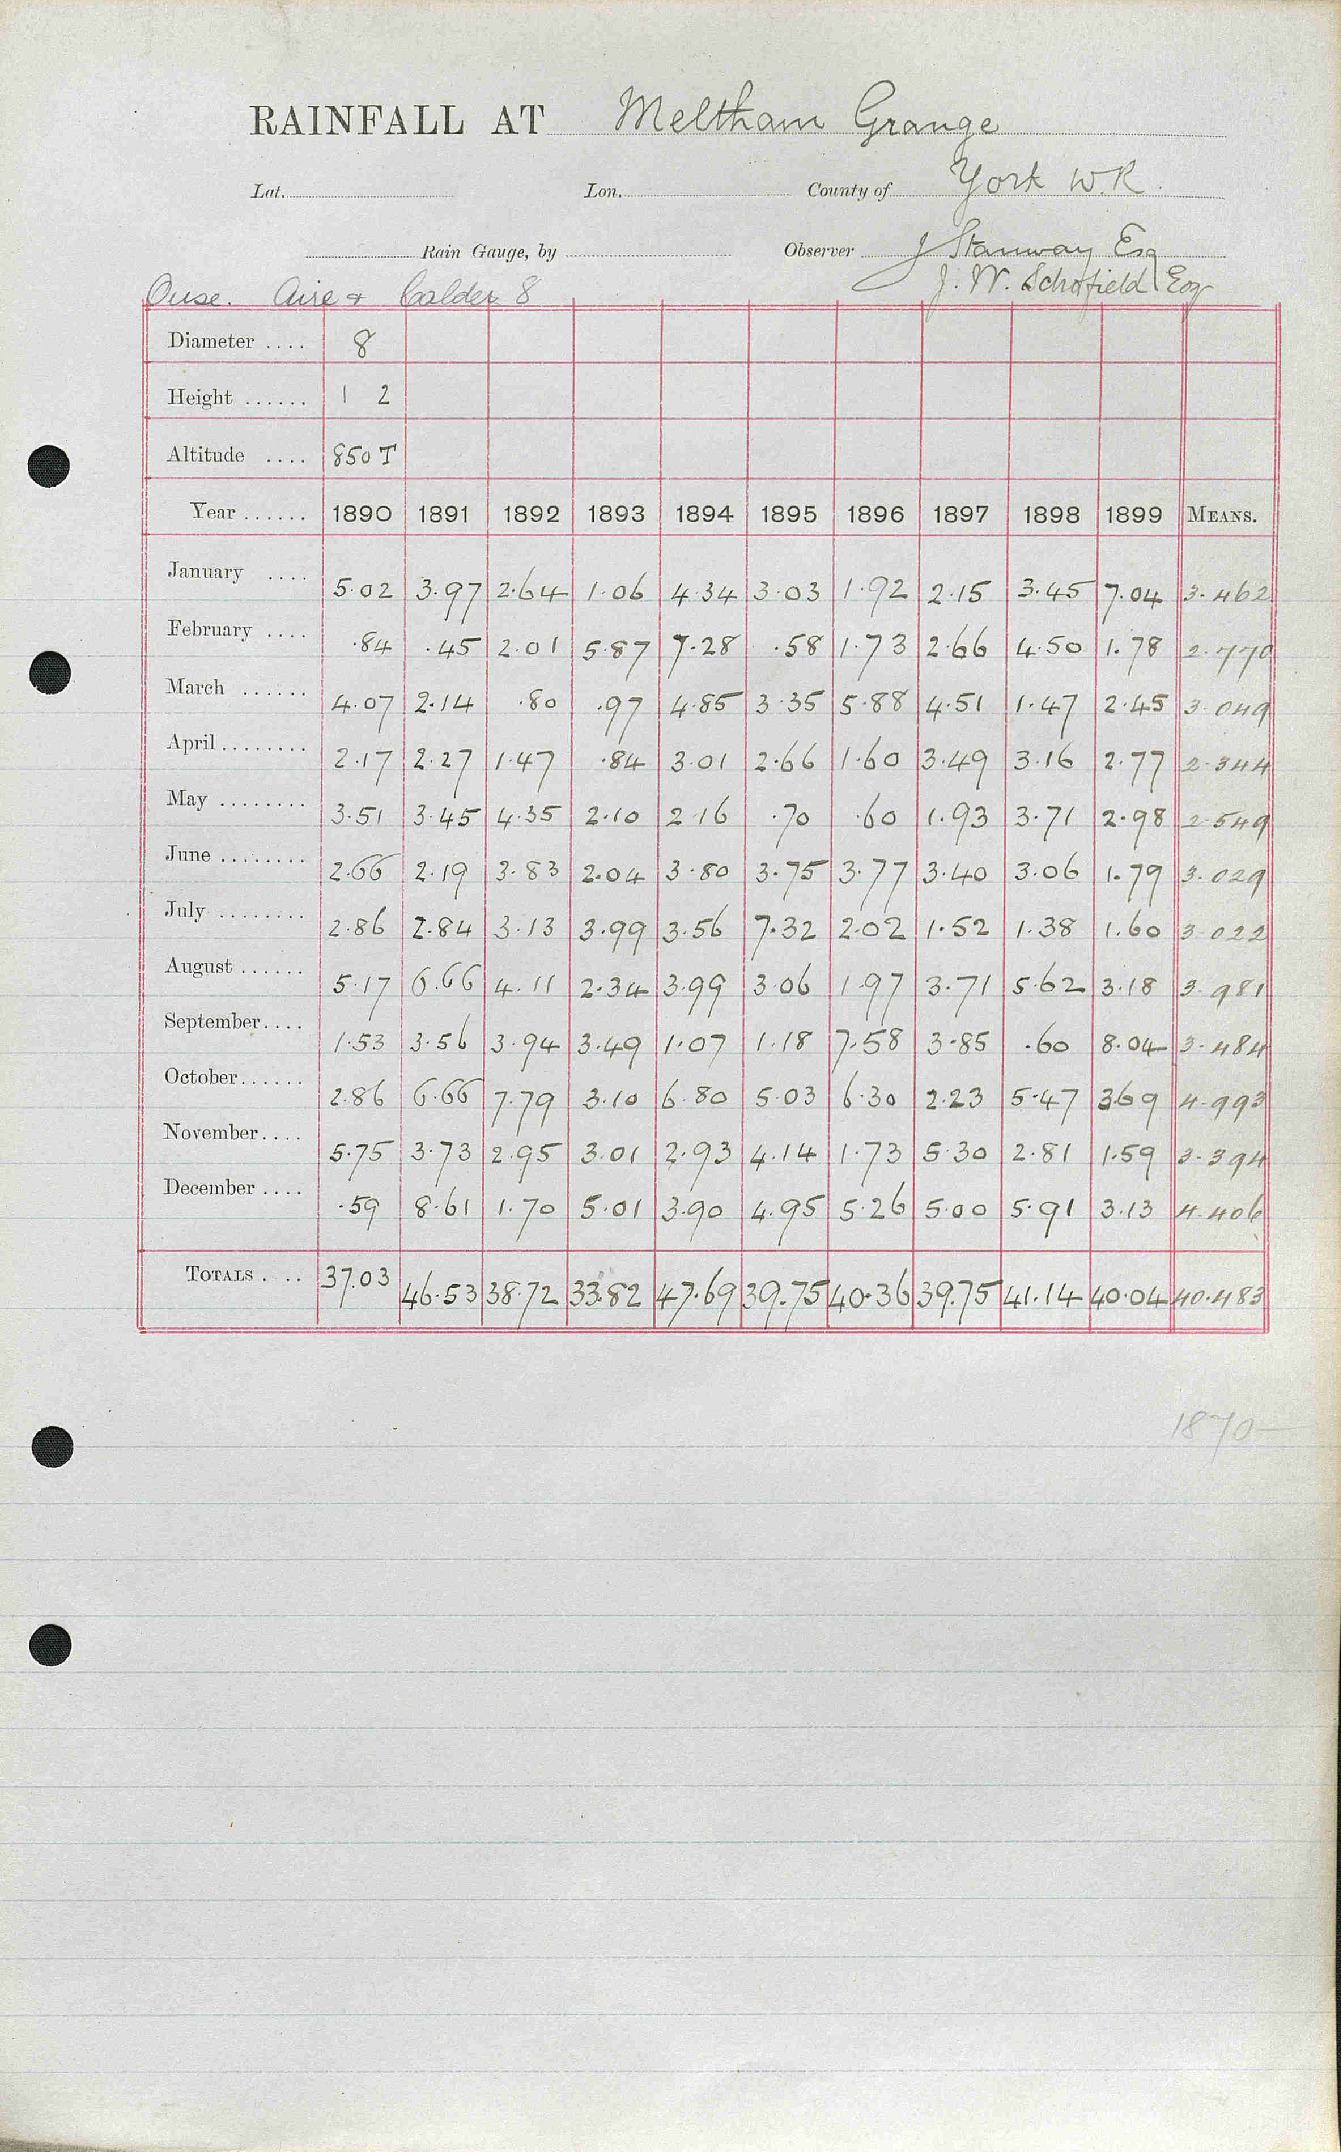 RAINFALL AT Meltham Grange
Lat. Lon. County of York W.R.
Rain Gauge, by Observer J Stanway Esq
Ouse. Aire & Calder 8 J. W. Schofield Esq
Diameter .... 8
Height ...... 1 2
Altitude .... 850 T
Year ...... 1890 1891 1892 1893 1894 1895 1896 1897 1898 1899 MEANS.
January .... 5.02 3.97 2.64 1.06 4.34 3.03 1.92 2.15 3.45 7.04 3.462
February .... .84 .45 2.01 5.87 7.28 .58 1.73 2.66 4.50 1.78 2.770
March ...... 4.07 2.14 .80 .97 4.85 3.35 5.88 4.51 1.47 2.45 3.049
April ........ 2.17 2.27 1.47 .84 3.01 2.66 1.60 3.49 3.16 2.77 2.344
May ........ 3.51 3.45 4.35 2.10 2.16 .70 .60 1.93 3.71 2.98 2.549
June ........ 2.66 2.19 3.83 2.04 3.80 3.75 3.77 3.40 3.06 1.79 3.029
July ........ 2.86 2.84 3.13 3.99 3.56 7.32 2.02 1.52 1.38 1.60 3.022
August ...... 5.17 6.66 4.11 2.34 3.99 3.06 1.97 3.71 5.62 3.18 3.981
September .... 1.53 3.56 3.94 3.49 1.07 1.18 7.58 3.85 .60 8.04 3.484
October ...... 2.86 6.66 7.79 3.10 6.80 5.03 6.30 2.23 5.47 3.69 4.993
November .... 5.75 3.73 2.95 3.01 2.93 4.14 1.73 5.30 2.81 1.59 3.394
December .... .59 8.61 1.70 5.01 3.90 4.95 5.26 5.00 5.91 3.13 4.406
TOTALS .... 37.03 46.53 38.72 33.82 47.69 39.75 40.36 39.75 41.14 40.04 40.483
1870-